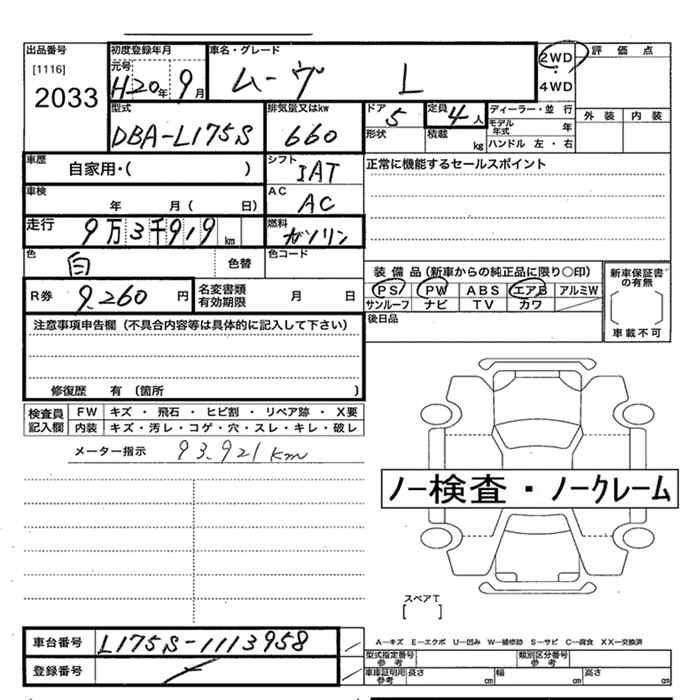 出品番号 初度登録年月 車名・グレード 2WD 評価点
[1116] 元号 ムーヴ L ・
2033 H20年9月 4WD
型式 排気量又はkw ドア 5 定員 4人 ディーラー・並行 外装 内装
DBA-L175S 660 形状 積載 kg モデル年式 年
ハンドル 左・右
車歴 自家用・( ) シフト IAT 正常に機能するセールスポイント
車検 年 月( 日) AC AC
走行 9万3千919km 燃料 ガソリン
色 白 色替 色コード
装備品(新車からの純正品に限り○印) 新車保証書の有無
R券 9,260円 名変書類有効期限 月 日 PS PW ABS エアB アルミW
サンルーフ ナビ TV カワ
注意事項申告欄(不具合内容等は具体的に記入して下さい) 後日品 車載不可
修復歴 有(箇所 )
検査員記入欄 FW キズ・飛石・ヒビ割・リペア跡・X要
内装 キズ・汚レ・コゲ・穴・スレ・キレ・破レ
メーター指示 93,921km
ノー検査・ノークレーム
スペアT
[ ]
車台番号 L175S-1113958 A−キズ E−エクボ U−凹み W−補修跡 S−サビ C−腐食 XX−交換済
型式指定番号参考 類別区分番号参考
登録番号 車庫証明用参考 長さ cm 幅 cm 高さ cm